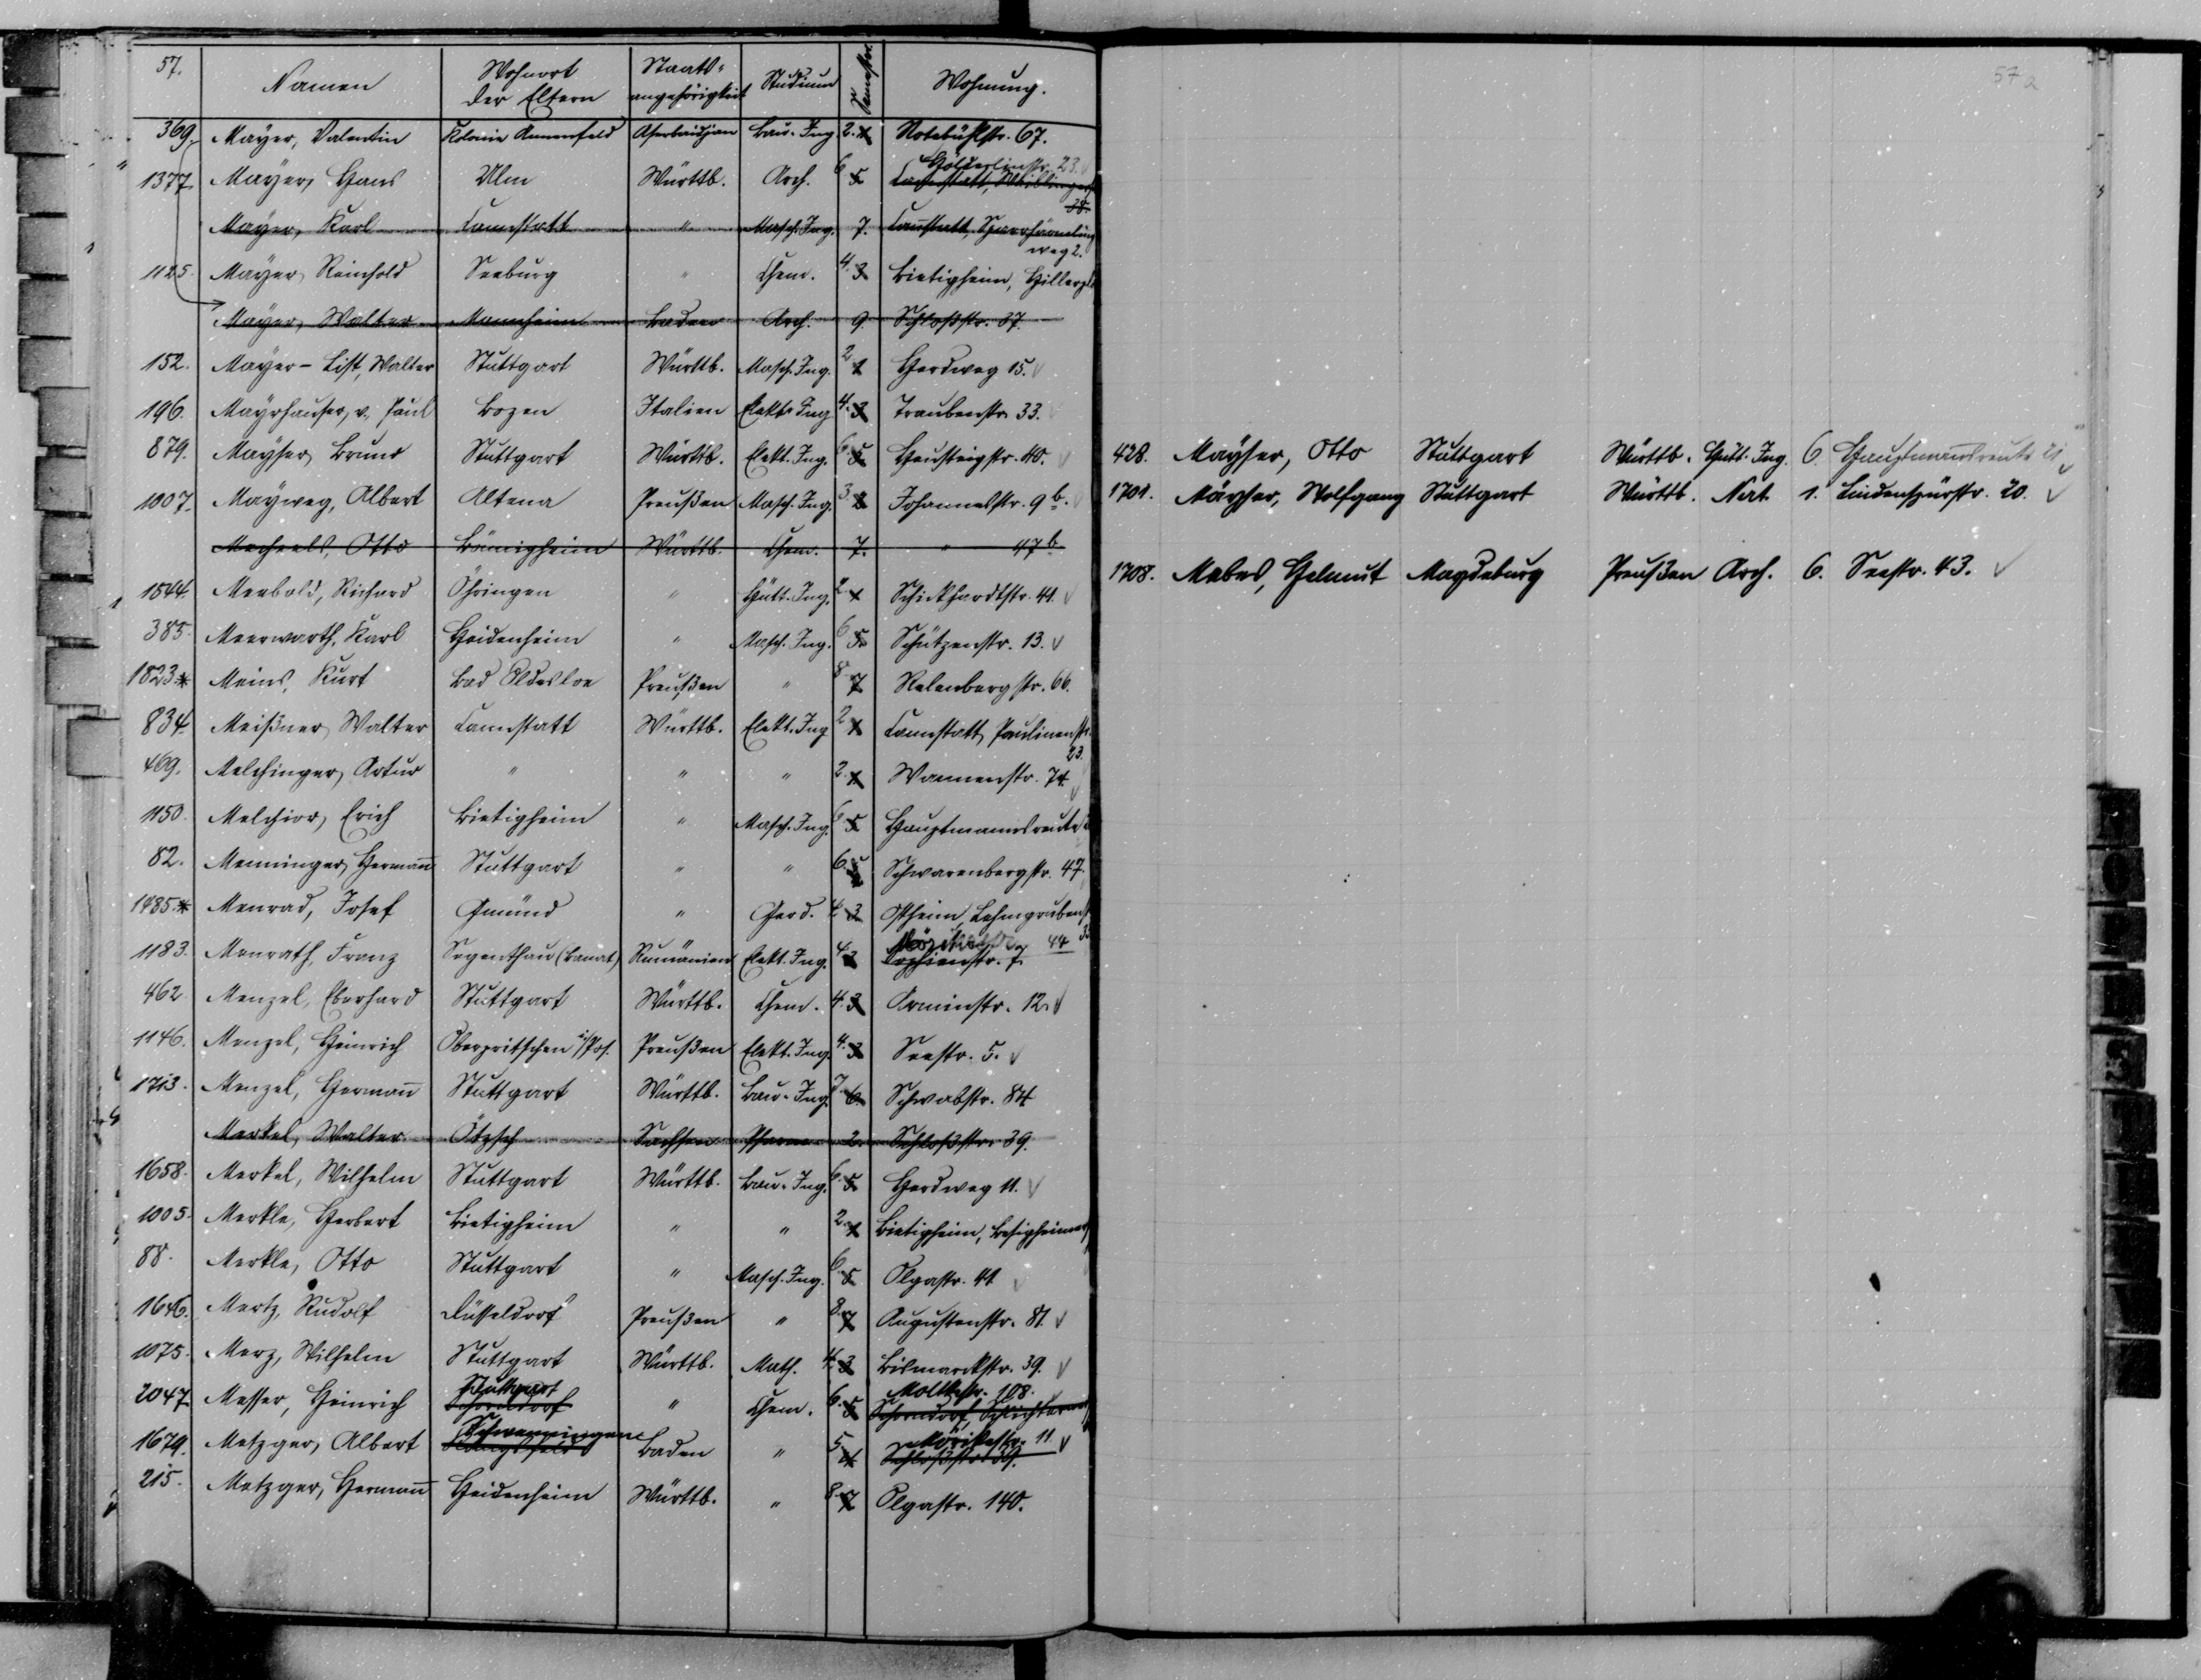 57. Namen Wohnort der Eltern Staats-angehörigkeit Studium Semester. Wohnung.
369. Mayer, Valentin Kolonie Annenfeld Aserbaidjan Bau-Ing 2. 1 Rotebühlstr. 67.
Hölderlinstr. 23.
1377. Mayer, Hans Ulm Württb. Arch. 6 5. Cannstatt, Waiblinger 38.
Mayer, Karl Cannstatt " Masch. Ing. 7. Cannstatt, Sparrhärmling weg 2.
1125. Mayer, Reinhold Seeburg " Chem. 4. 3 Bietigheim, Hillerpl
Mayer, Walter Mannheim Baden Arch. 9. Schloßstr. 37.
152. Mayer-List, Walter Stuttgart Württb. Masch. Ing. 2 1 Herdweg 15. √
196. Mayrhauser, v. Paul Bozen Italien Elekt. Ing 4. 3 Traubenstr. 33. √
879. Mayser, Bruno Stuttgart Württb. Elekt. Ing. 6. 5. Heusteigstr. 40. √
1007. Mayweg, Albert Altena Preußen Masch. Ing. 3 2 Johannesstr. 9 b. √
Mecheels, Otto Bönnigheim Württb. Chem. 7. " 47 b.
1544. Meebold, Richard Öhringen " Hütt. Ing. 2 1 Schickhardtstr. 41. √
385. Meerwarth, Karl Heidenheim " Masch. Ing. 6 5. Schützenstr. 13. √
1823.* Meins, Kurt Bad Oldesloe Preußen " 8 7 Relenbergstr. 66.
834. Meißner, Walter Cannstatt Württb. Elekt. Ing 2 1 Cannstatt, Paulinenstr. 23.
469. Melchinger, Artur " " " 2. 1 Wannenstr. 74. √
1150. Melchior, Erich Bietigheim " Masch. Ing. 6 5 Hauptmannsreute
82. Menninger, Hermann Stuttgart " " 6. 5 Schwarenbergstr. 47.
1485.* Menrad, Josef Gmünd " Geod. 4. 3. Ostheim, Lehmgruben
Mörikestr. 44
1183. Menrath, Franz Segenthau (Banat) Rumänien Elekt. Ing. 4. 3 Sophienstr. 7
462. Menzel, Eberhard Stuttgart Württb. Chem. 4. 3 Arminstr. 12. √
1146. Menzel, Heinrich Oberpritschen i/Pos. Preußen Elekt. Ing. 4. 3 Seestr. 5. √
1713. Menzel, Hermann Stuttgart Württb. Bau-Ing. 7. 6. Schwabstr. 84
Merkel, Walter Ötzsch Sachsen Pharm. 2. Schloßstr. 39.
1658. Merkel, Wilhelm Stuttgart Württb. Bau-Ing. 6. 5 Herdweg 11. √
1005. Merkle, Herbert Bietigheim " " 2. 1 Bietigheim, Besigheimer
88. Merkle, Otto Stuttgart " Masch. Ing. 6. 5 Olgastr. 41 √
1646. Mertz, Rudolf Düsseldorf Preußen " 8. 7 Augustenstr. 81. √
1075. Merz, Wilhelm Stuttgart Württb. Math. 4. 3 Bismarckstr. 39. √
Stuttgart Moltkestr. 108.
2047. Messer, Heinrich Schorndorf " Chem. 6. 5 Schorndorf, Schlichterner
Schwenningen Mörikestr. 11. √
1679. Metzger, Albert Baden " 5. 4 Schloßstr. 39.
215. Metzger, Hermann Heidenheim Württb. " 8. 7 Olgastr. 140.
57 a
428. Mayser, Otto Stuttgart Württb. Hütt. Ing. 6. Hauptmannsreute 21 √
1701. Mayser, Wolfgang Stuttgart Württb. Nat. 1. Lindenspürstr. 20. √
1708. Mebes, Helmut Magdeburg Preußen Arch. 6. Seestr. 43. √